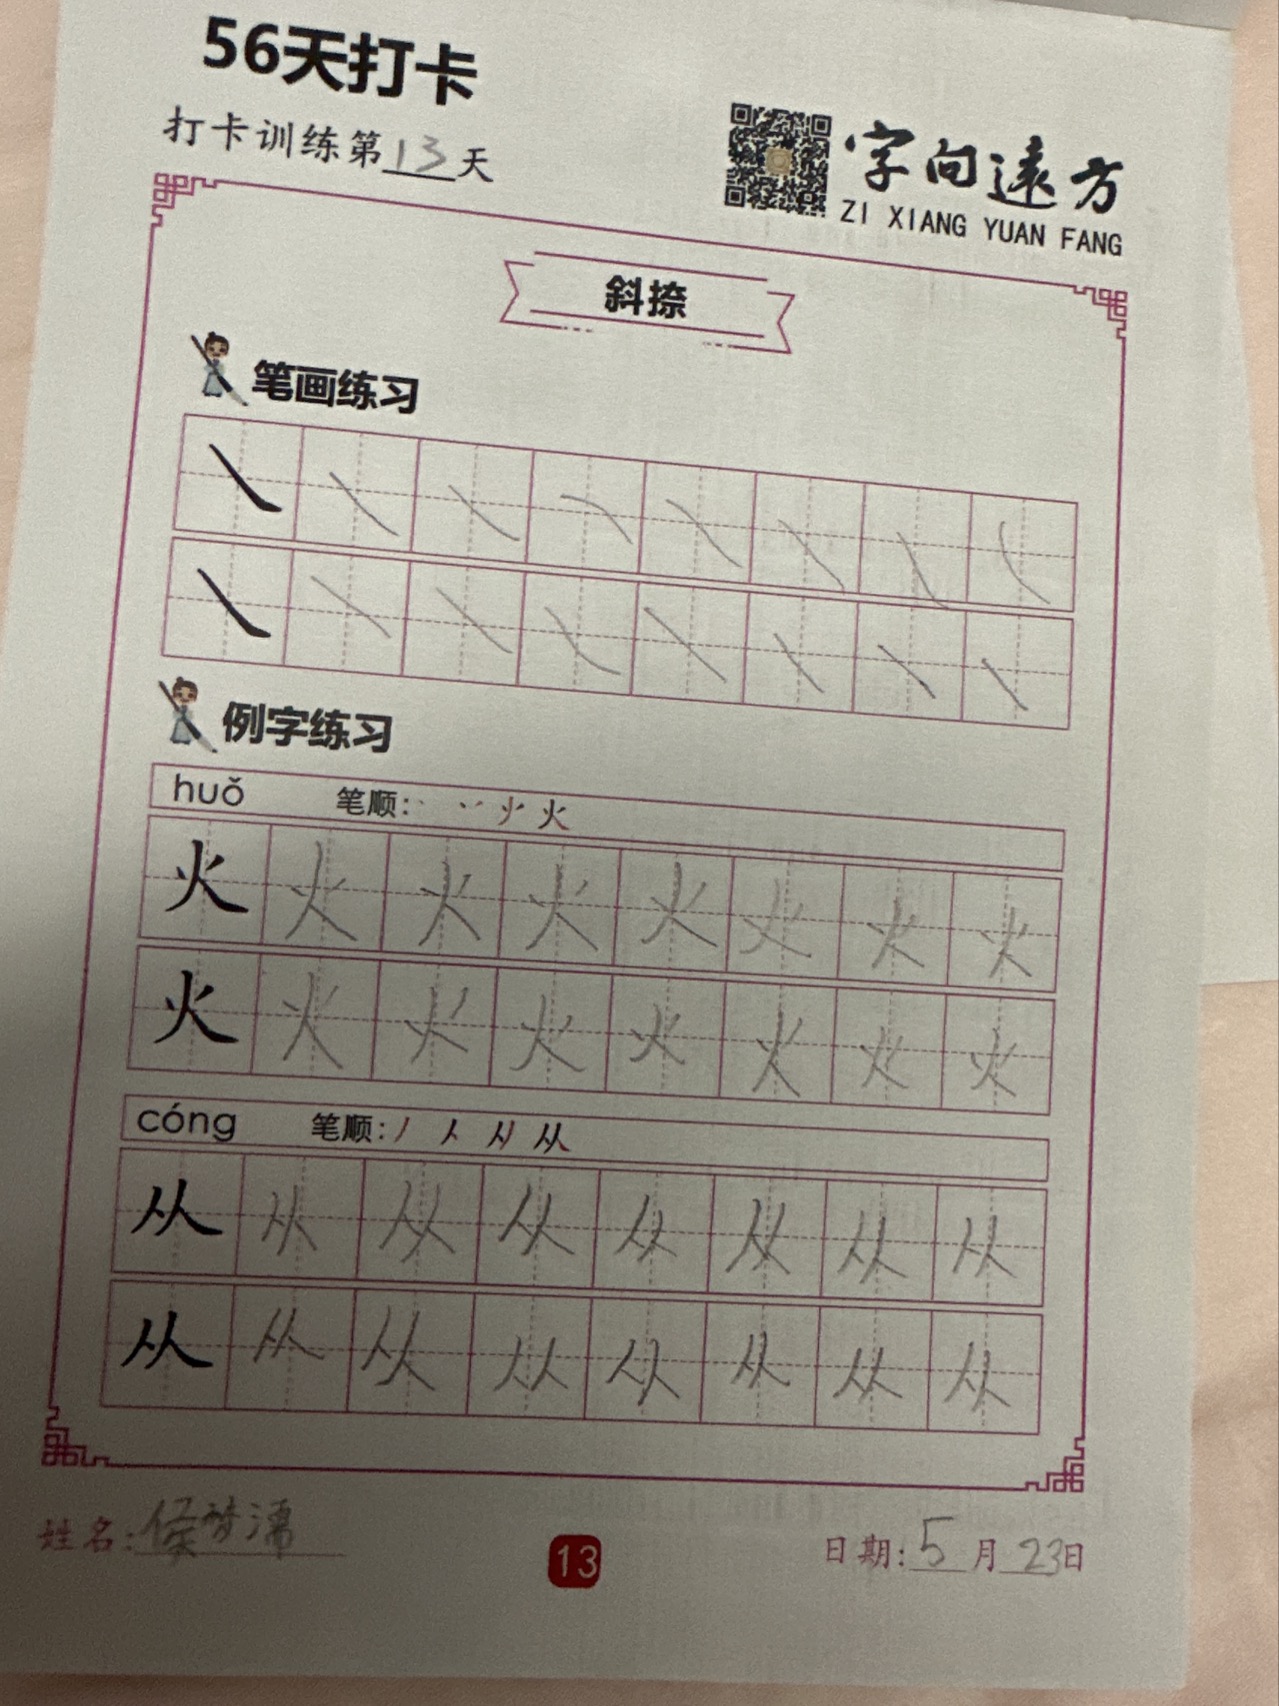 56天打卡
打卡训练第13天
字向远方
ZI XIANG YUAN FANG
斜捺
笔画练习
例字练习
huǒ 笔顺: 火
火火火火火火火火
火火火火火火火火
cóng 笔顺: 从
从从从从从从从从
从从从从从从从从
姓名:侯梦
13
日期:5月23日